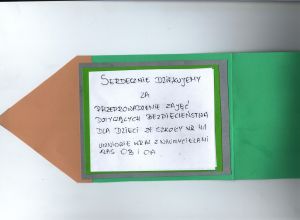 SERDECZNIE DZIĘKUJEMY
ZA
PRZEPROWADZENIE ZAJĘĆ
DOTYCZĄCYCH BEZPIECZEŃSTWA
DLA DZIECI ZE SZKOŁY NR 41
UCZNIOWIE WRAZ Z NAUCZYCIELAMI
KLAS OB I OA